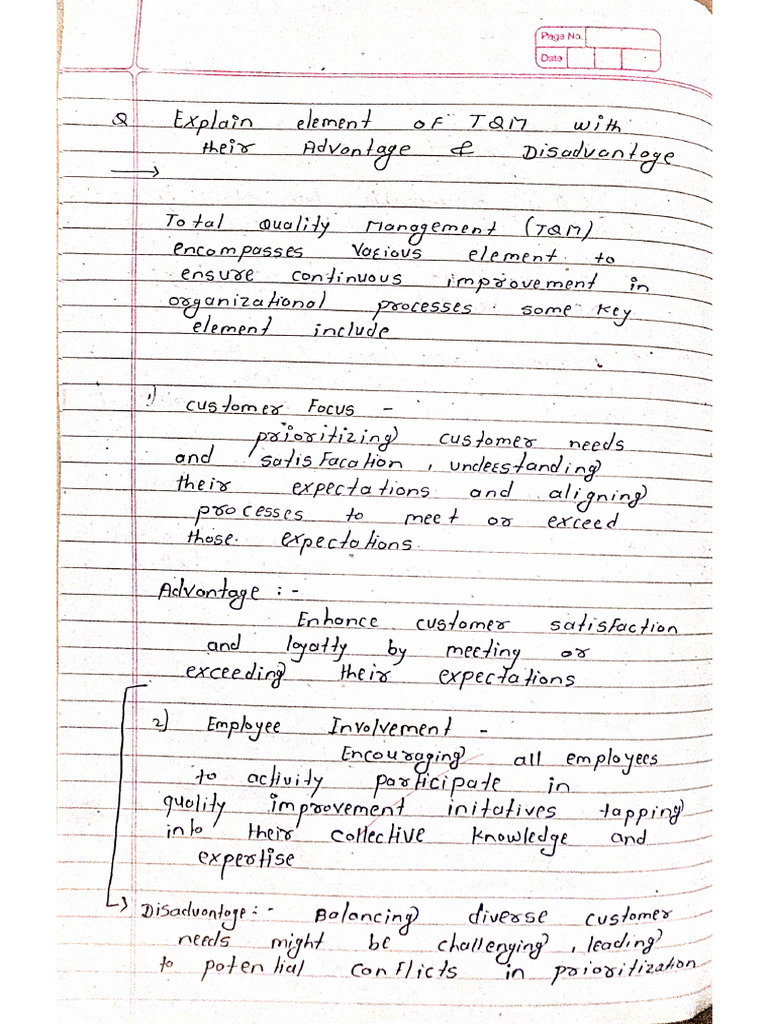 Page No.
Date
Q Explain element of TQM with
their Advantage & Disadvantage
→
Total Quality Management (TQM)
encompasses various element to
ensure continuous improvement in
organizational processes. some key
element include
1) customer Focus -
prioritizing customer needs
and satisfacation, understanding
their expectations and aligning
processes to meet or exceed
those. expectations.
Advantage :-
Enhance customer satisfaction
and loyatty by meeting or
exceeding their expectations
2) Employee Involvement -
Encouraging all employees
to activity participate in
quality improvement initatives tapping
into their collective knowledge and
expertise
Disadvantage :- Balancing diverse customer
needs might be challenging, leading
to potential conflicts in prioritization